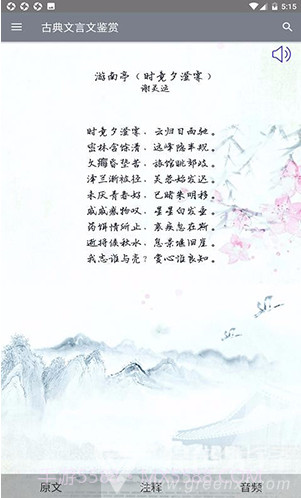 5:15
古典文言文鉴赏
游南亭（时竟夕澄霁）
谢灵运
时竟夕澄霁，云归日西驰。
密林含馀清，远峰隐半规。
久痗昏垫苦，旅馆眺郊歧。
泽兰渐被径，芙蓉始发迟。
未厌青春好，已睹朱明移。
戚戚感物叹，星星白发垂。
药饵情所止，衰疾忽在斯。
逝将候秋水，息景偃旧崖。
我志谁与亮？赏心谁良知。
原文
注释
音频